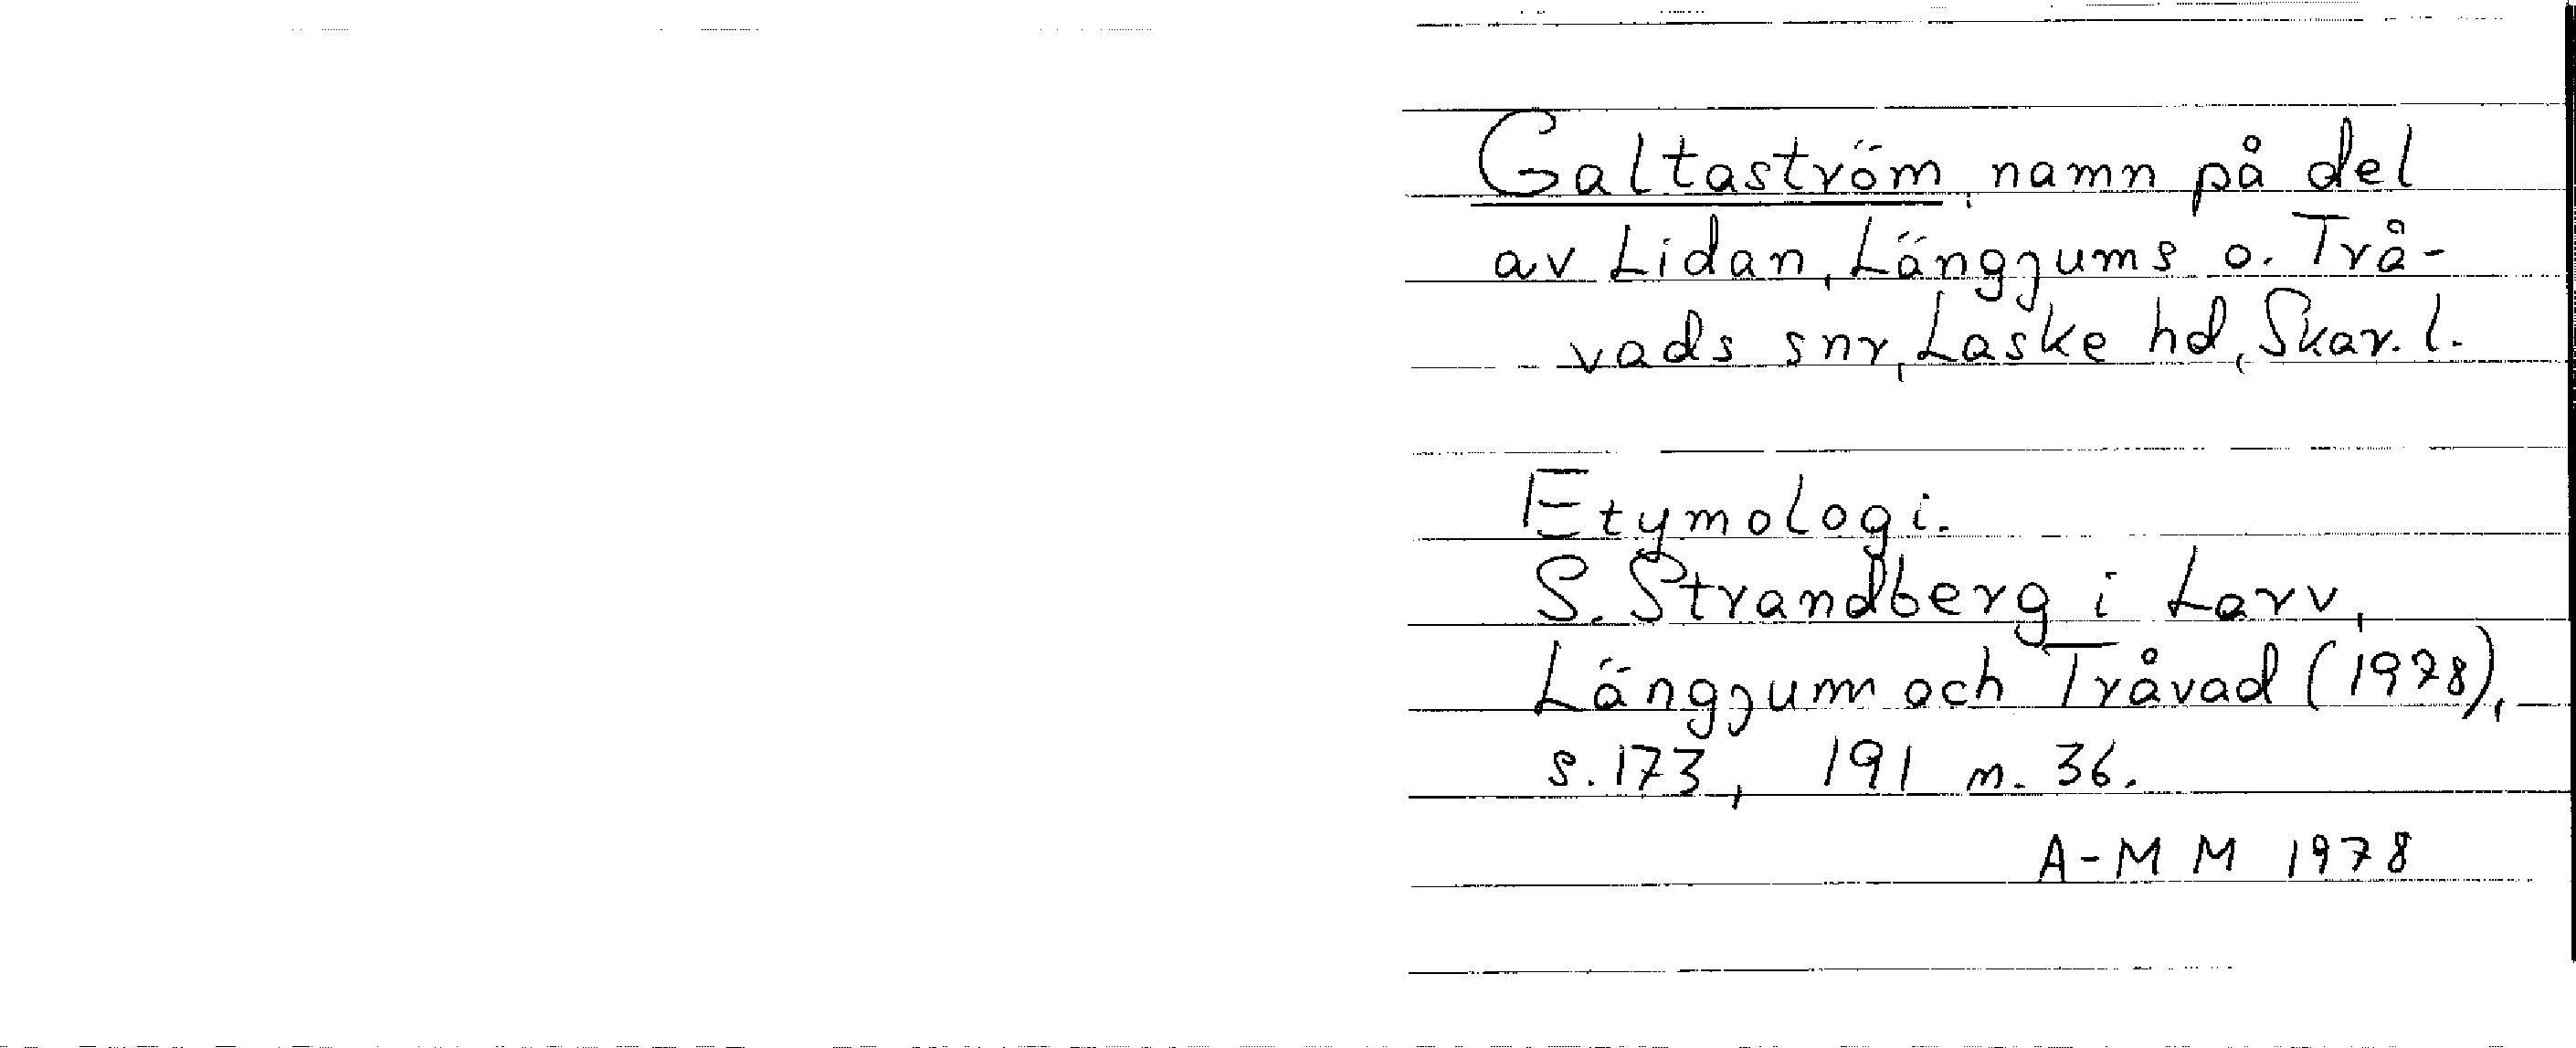 Galtaström, namn på del
av Lidan, Längjums o. Trå-
vads snr, Laske hd, Skar. l.
Etymologi.
S. Strandberg i Larv,
Längjum och Tråvad (1978),
s. 173, 191 n. 36.
A-M M 1978